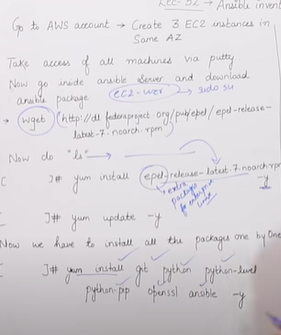 Lec-32 → Ansible invent
Go to AWS account → Create 3 EC2 instances in
Same AZ
Take access of all machines via putty
Now go inside ansible server and download
ansible package
ec2-user → sudo su
→ wget http://dl.fedoraproject.org/pub/epel/epel-release-
latest-7.noarch.rpm
Now do "ls"
[ ]# yum install epel-release-latest-7.noarch.rpm
-y
extra
packages
for enterprise
linux
[ ]# yum update -y
Now we have to install all the packages one by One
[ ]# yum install git python python-level
python-pip openssl ansible -y